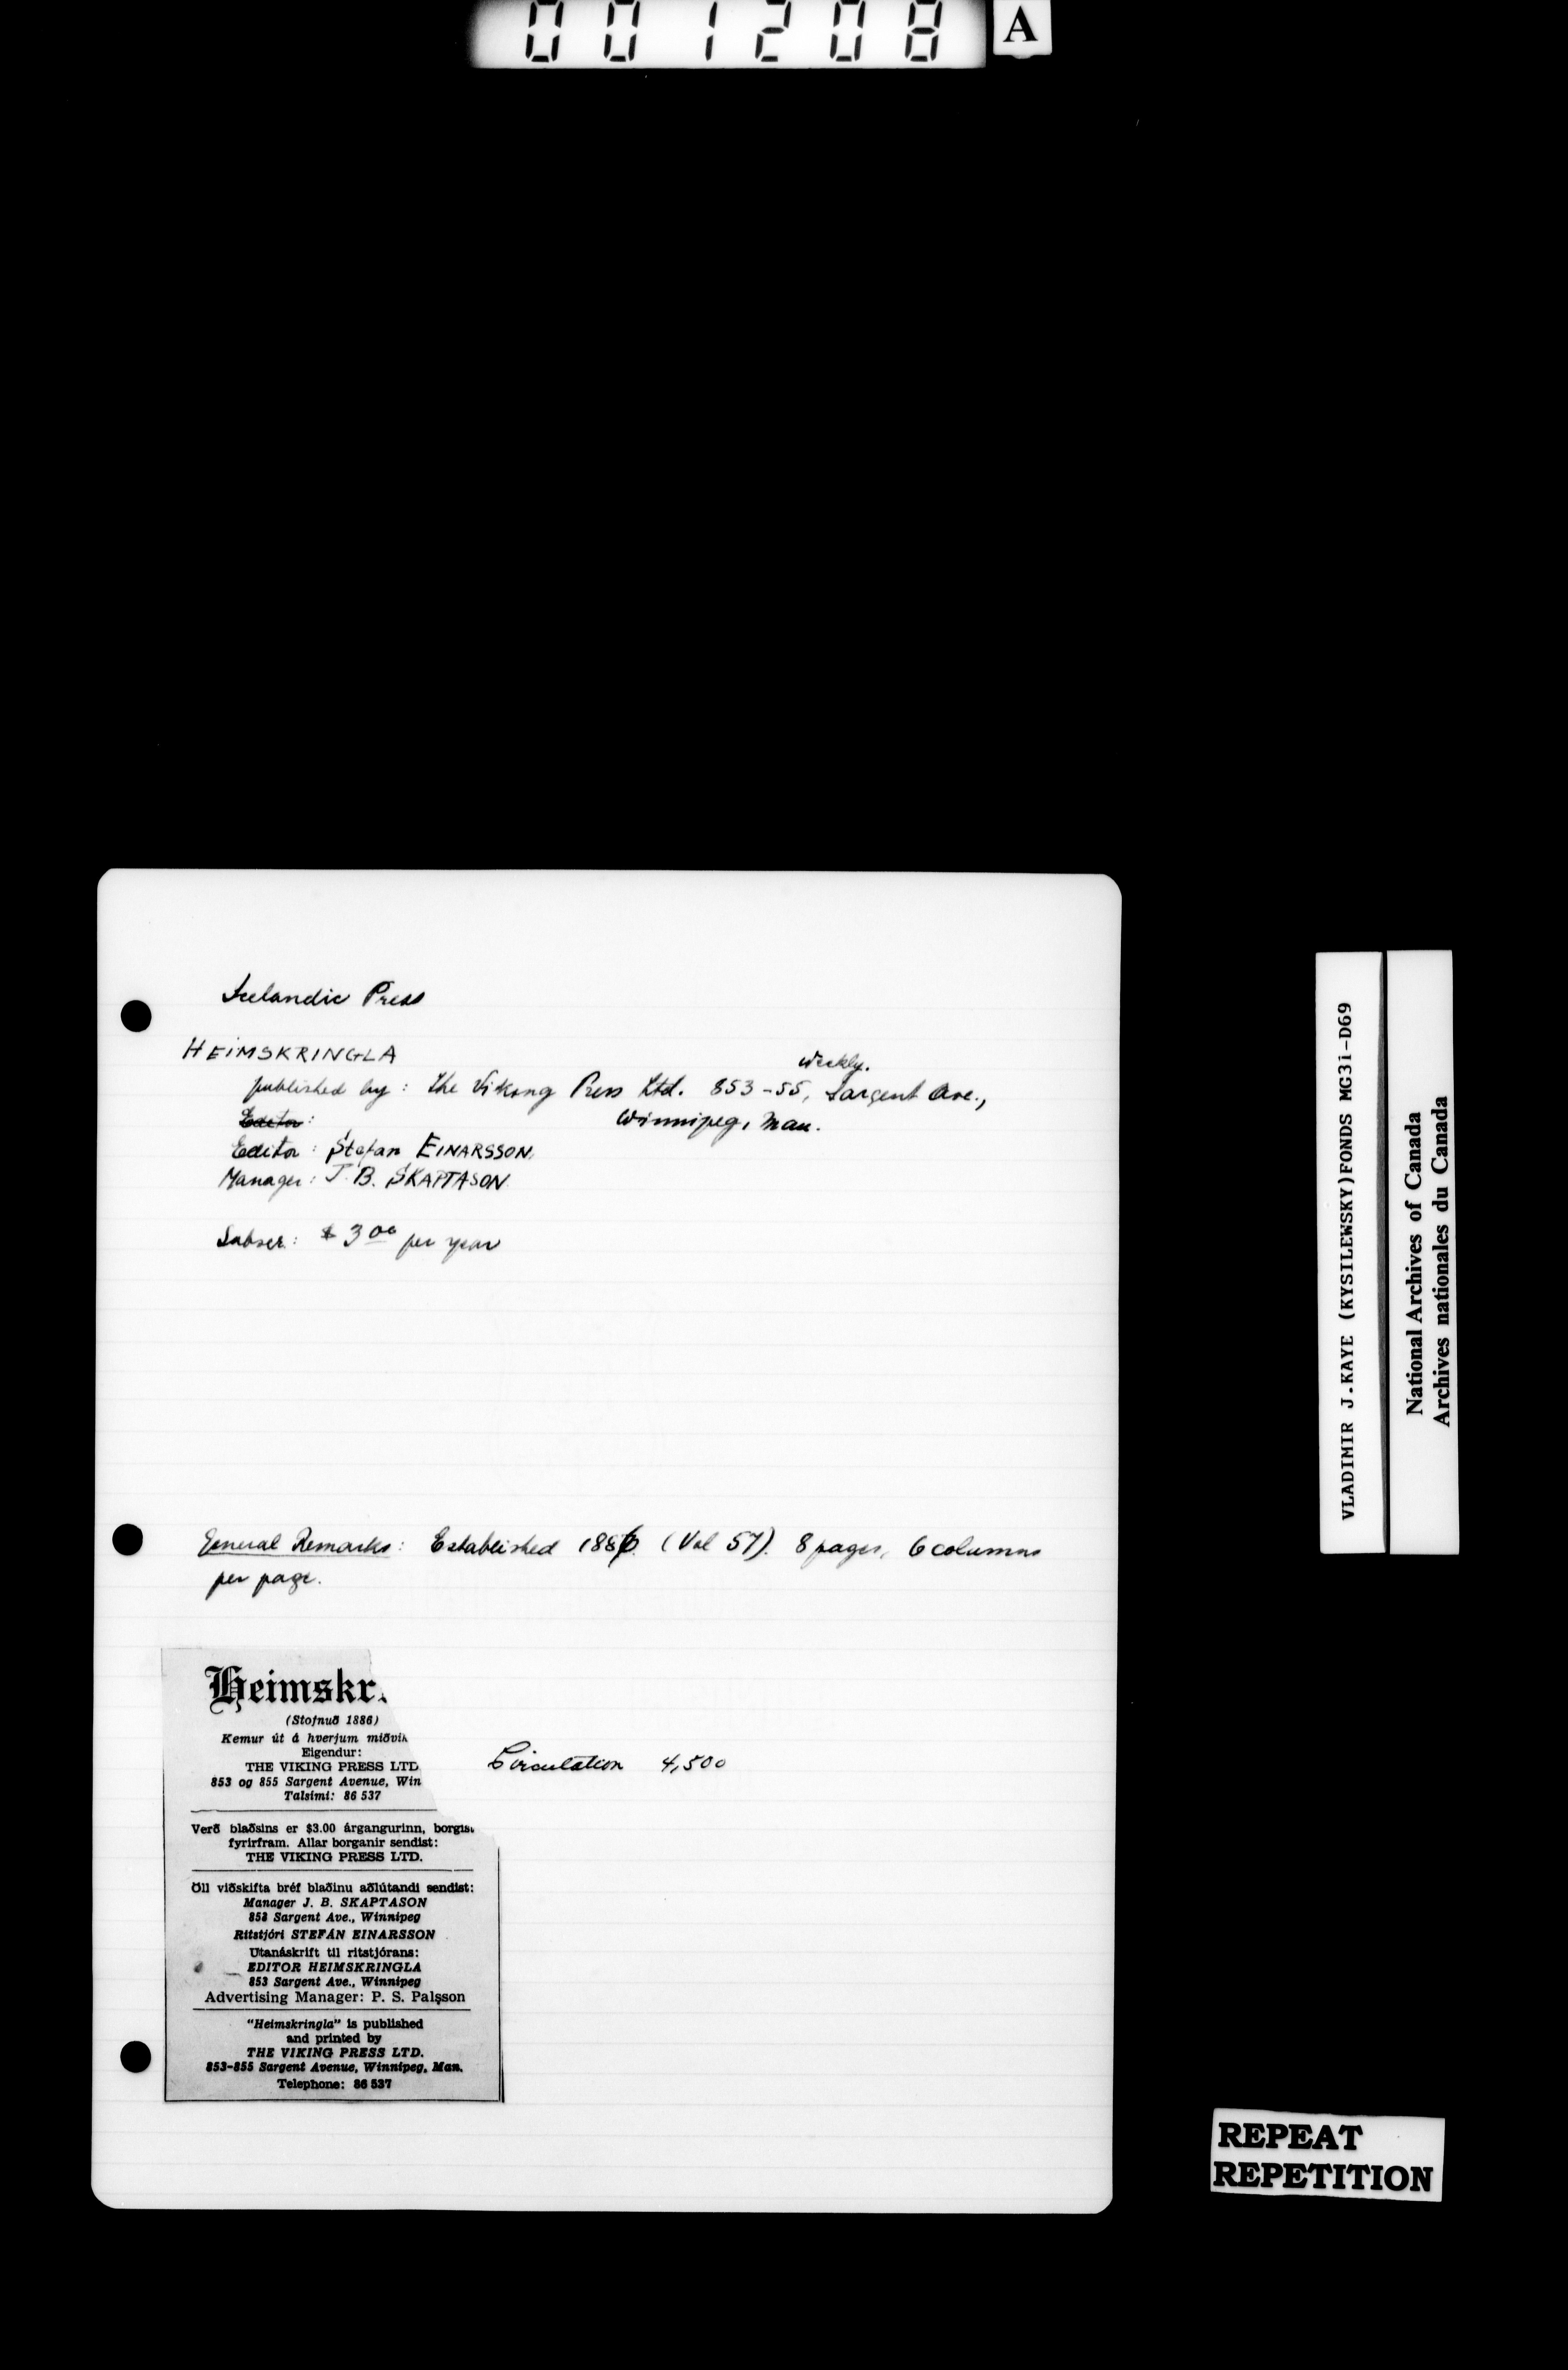 001208 A
Icelandic Press
HEIMSKRINGLA
weekly.
published by: The Viking Press Ltd. 853-55, Sargent Ave.,
Editor:
Winnipeg, Man.
Editor: Stefan EINARSSON.
Manager: J. B. SKAPTASON
Subscr.: $ 3 00 per year
General Remarks: Established 1886 (Vol 57). 8 pages, 6 columns
per page.
Heimskr
(Stofnuð 1886)
Kemur út á hverjum miðvik
Eigendur:
THE VIKING PRESS LTD
853 og 855 Sargent Avenue, Win
Talsími: 86 537
Circulation 4,500
Verð blaðsins er $3.00 árgangurinn, borgist
fyrirfram. Allar borganir sendist:
THE VIKING PRESS LTD.
Öll viðskifta bréf blaðinu aðlútandi sendist:
Manager J. B. SKAPTASON
853 Sargent Ave., Winnipeg
Ritstjóri STEFÁN EINARSSON
Utanáskrift til ritstjórans:
EDITOR HEIMSKRINGLA
853 Sargent Ave., Winnipeg
Advertising Manager: P. S. Palsson
"Heimskringla" is published
and printed by
THE VIKING PRESS LTD.
853-855 Sargent Avenue, Winnipeg, Man.
Telephone: 86 537
VLADIMIR J.KAYE (KYSILEWSKY)FONDS MG31-D69
National Archives of Canada
Archives nationales du Canada
REPEAT
REPETITION